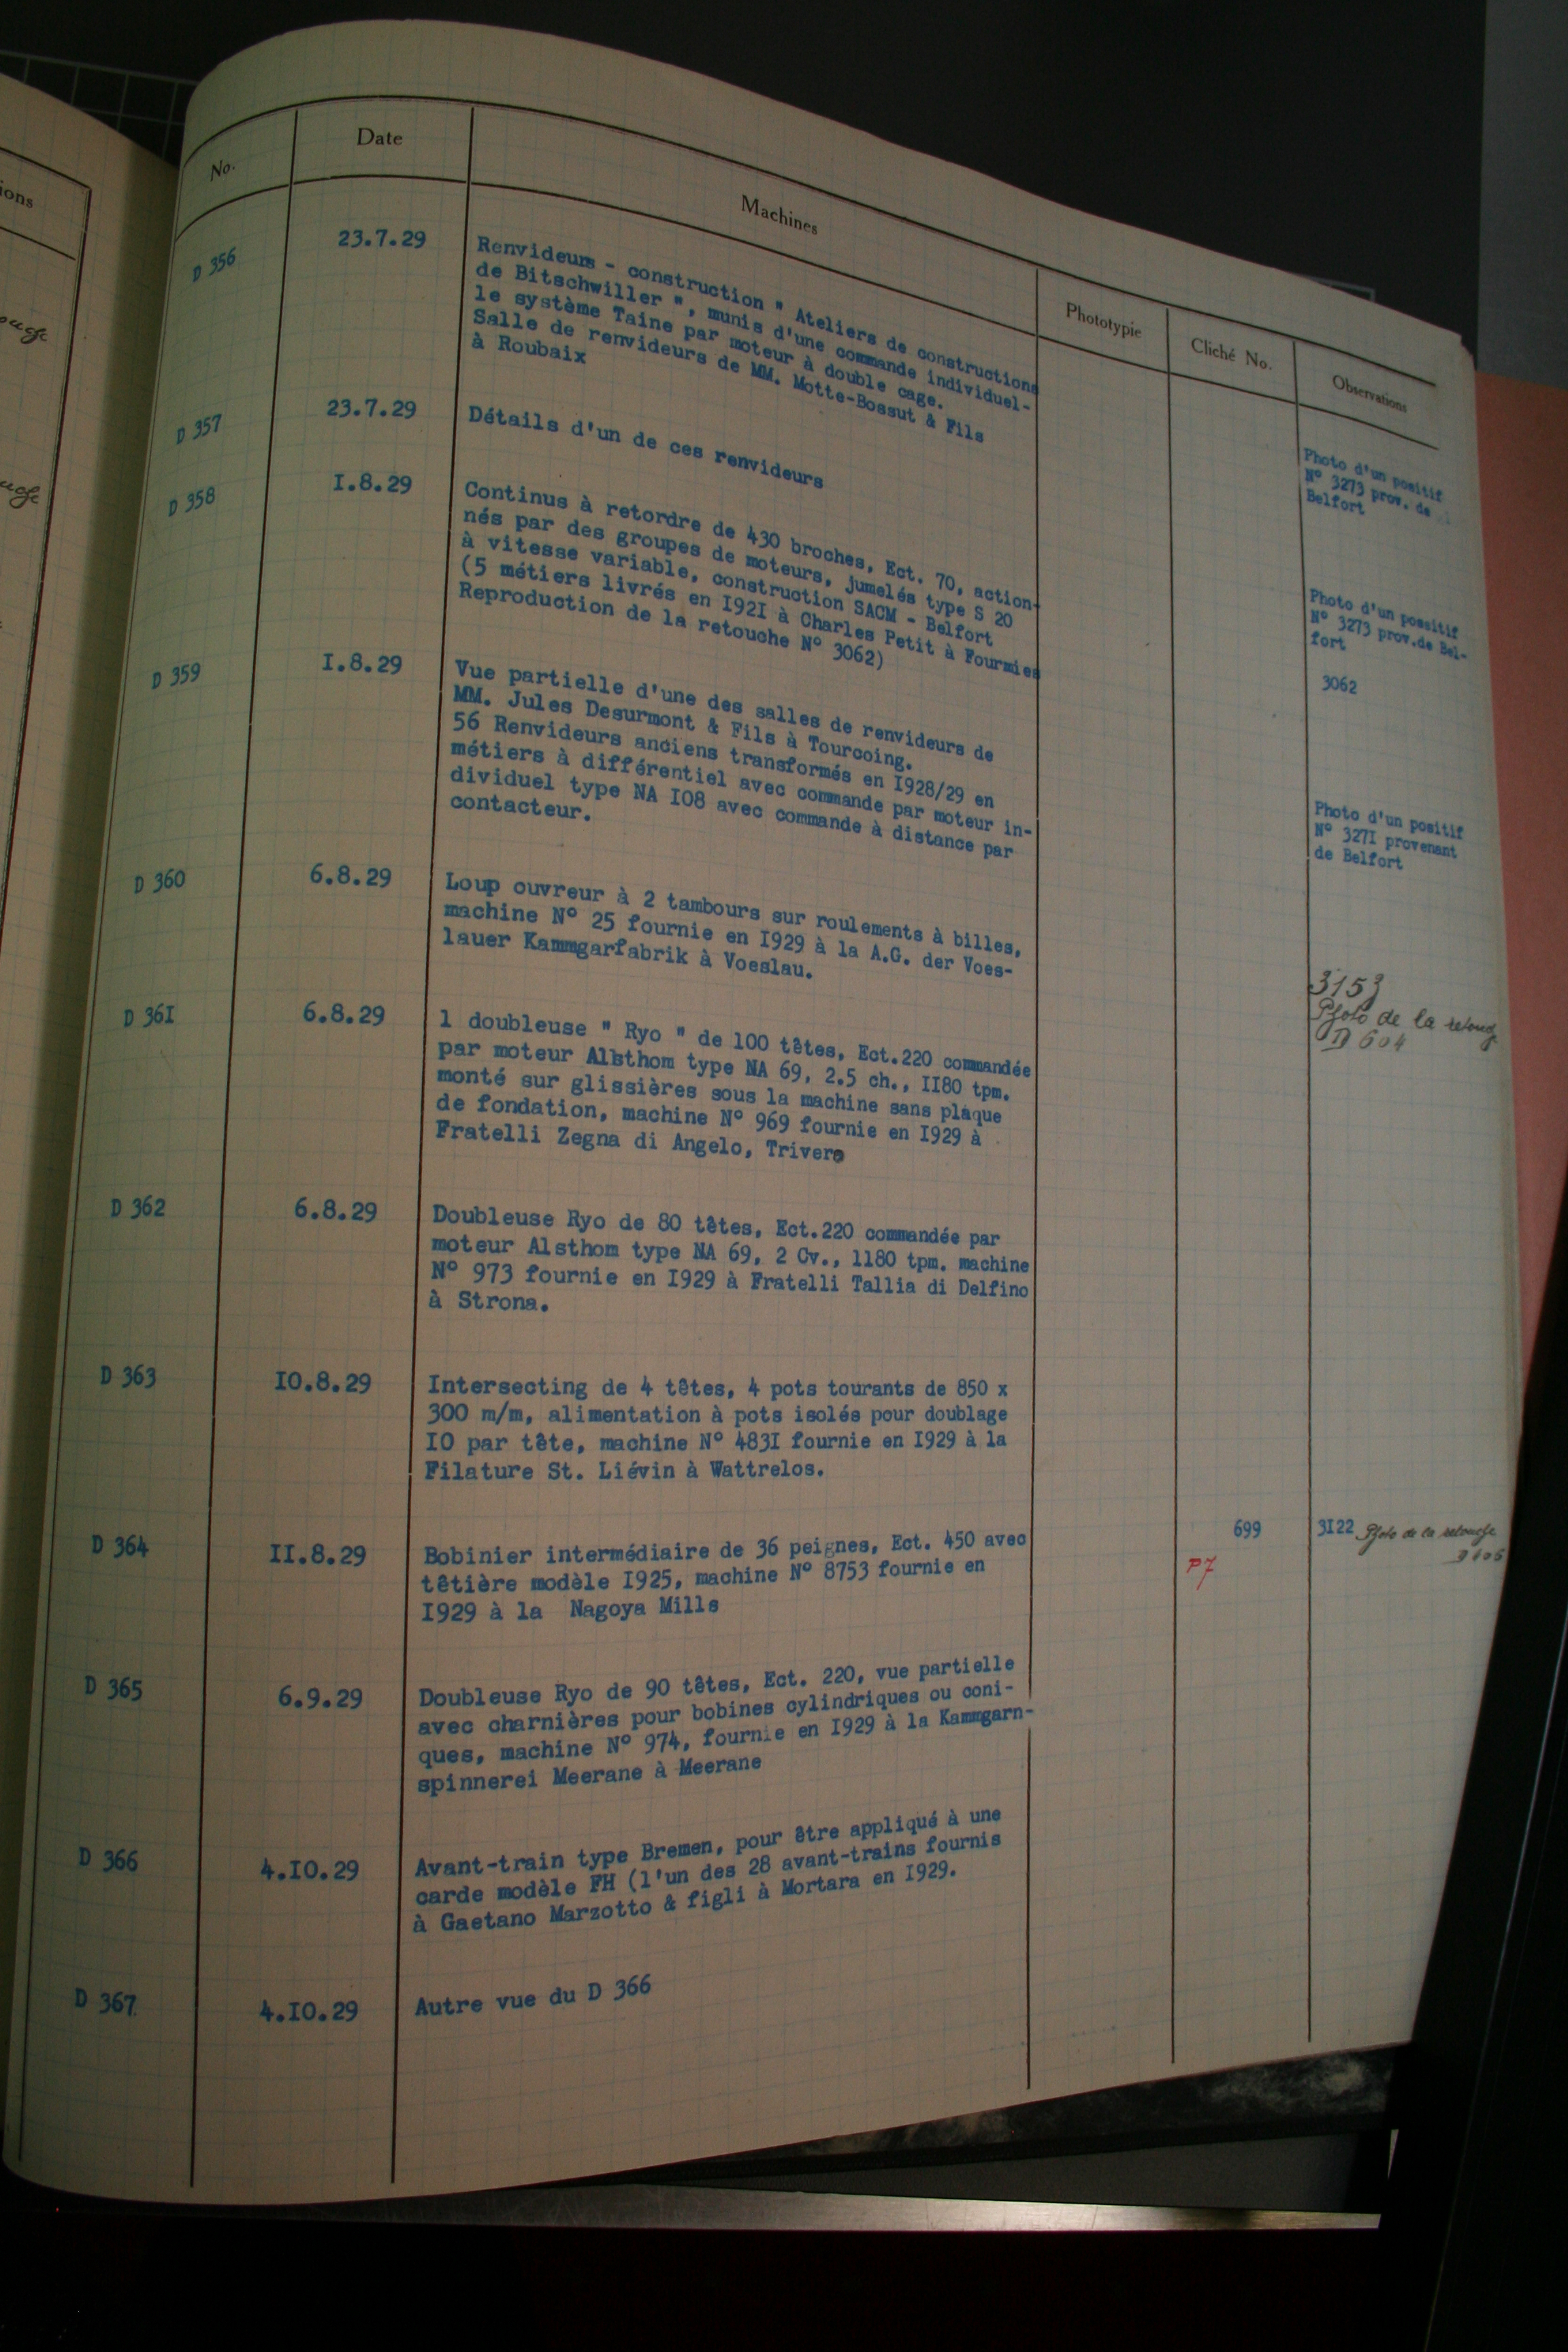 ions
No.
Date
Machines
Phototypie
Cliché No.
Observations
D 356
23.7.29
Renvideurs - construction " Ateliers de constructions
de Bitschwiller ", munis d'une commande individuel-
le système Taine par moteur à double cage.
Salle de renvideurs de MM. Motte-Bossut & Fils
à Roubaix
Photo d'un positif
N° 3273 prov. de
Belfort
D 357
23.7.29
Détails d'un de ces renvideurs
Photo d'un possitif
N° 3273 prov.de Bel-
fort
D 358
I.8.29
Continus à retordre de 430 broches, Ect. 70, action-
nés par des groupes de moteurs, jumelés type S 20
à vitesse variable, construction SACM - Belfort
(5 métiers livrés en I92I à Charles Petit à Fourmies
Reproduction de la retouche N° 3062)
3062
D 359
I.8.29
Vue partielle d'une des salles de renvideurs de
MM. Jules Desurmont & Fils à Tourcoing.
56 Renvideurs anciens transformés en I928/29 en
métiers à différentiel avec commande par moteur in-
dividuel type NA I08 avec commande à distance par
contacteur.
Photo d'un positif
N° 327I provenant
de Belfort
D 360
6.8.29
Loup ouvreur à 2 tambours sur roulements à billes,
machine N° 25 fournie en I929 à la A.G. der Voes-
lauer Kammgarfabrik à Voeslau.
3153
Photo de la
D 604
D 36I
6.8.29
1 doubleuse " Ryo " de 100 têtes, Ect.220 commandée
par moteur Alsthom type NA 69, 2.5 ch., II80 tpm.
monté sur glissières sous la machine sans plaque
de fondation, machine N° 969 fournie en I929 à
Fratelli Zegna di Angelo, Trivero
D 362
6.8.29
Doubleuse Ryo de 80 têtes, Ect.220 commandée par
moteur Alsthom type NA 69, 2 Cv., 1180 tpm. machine
N° 973 fournie en I929 à Fratelli Tallia di Delfino
à Strona.
D 363
IO.8.29
Intersecting de 4 têtes, 4 pots tourants de 850 x
300 m/m, alimentation à pots isolés pour doublage
IO par tête, machine N° 483I fournie en I929 à la
Filature St. Liévin à Wattrelos.
D 364
II.8.29
Bobinier intermédiaire de 36 peignes, Ect. 450 avec
têtière modèle I925, machine N° 8753 fournie en
I929 à la Nagoya Mills
699
P7
3I22 Photo de la retouche
D 365
6.9.29
Doubleuse Ryo de 90 têtes, Ect. 220, vue partielle
avec charnières pour bobines cylindriques ou coni-
ques, machine N° 974, fournie en I929 à la Kammgarn-
spinnerei Meerane à Meerane
D 366
4.IO.29
Avant-train type Bremen, pour être appliqué à une
carde modèle FH (l'un des 28 avant-trains fournis
à Gaetano Marzotto & figli à Mortara en I929.
D 367
4.IO.29
Autre vue du D 366